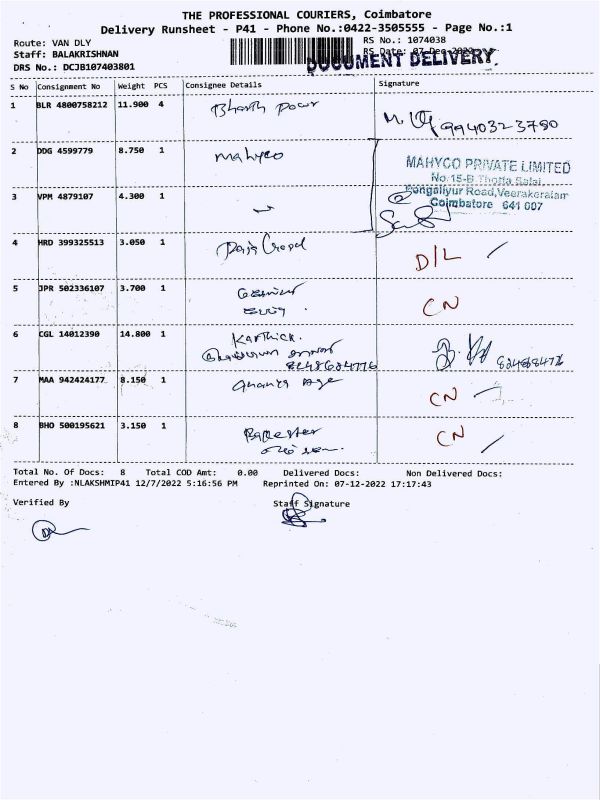 THE PROFESSIONAL COURIERS, Coimbatore
Delivery Runsheet - P41 - Phone No.:0422-3505555 - Page No.:1
Route: VAN DLY
RS No.: 1074038
Staff: BALAKRISHNAN
RS Date: 07-Dec-2022
DRS No.: DCJB107403801
DOCUMENT DELIVERY
S No Consignment No Weight PCS Consignee Details Signature
1 BLR 4800758212 11.900 4 Bharth power 9940323780
2 DDG 4599779 8.750 1 Mahyco
MAHYCO PRIVATE LIMITED
No.15-B Thotta Salai,
Pongaliyur Road, Veerakeralam
Coimbatore 641 007
3 VPM 4879107 4.300 1
4 HRD 399325513 3.050 1 D/L
5 JPR 502336107 3.700 1 CN
6 CGL 14012390 14.800 1 Karthick.
8248684776
7 MAA 942424177 8.150 1 CN
8 BHO 500195621 3.150 1 CN
Total No. Of Docs: 8 Total COD Amt: 0.00 Delivered Docs: Non Delivered Docs:
Entered By :NLAKSHMIP41 12/7/2022 5:16:56 PM Reprinted On: 07-12-2022 17:17:43
Verified By Staff Signature